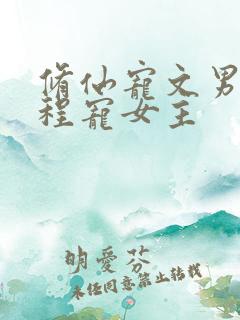 脩仙寵文男
程寵女主
明愛芬
未經同意禁止轉載